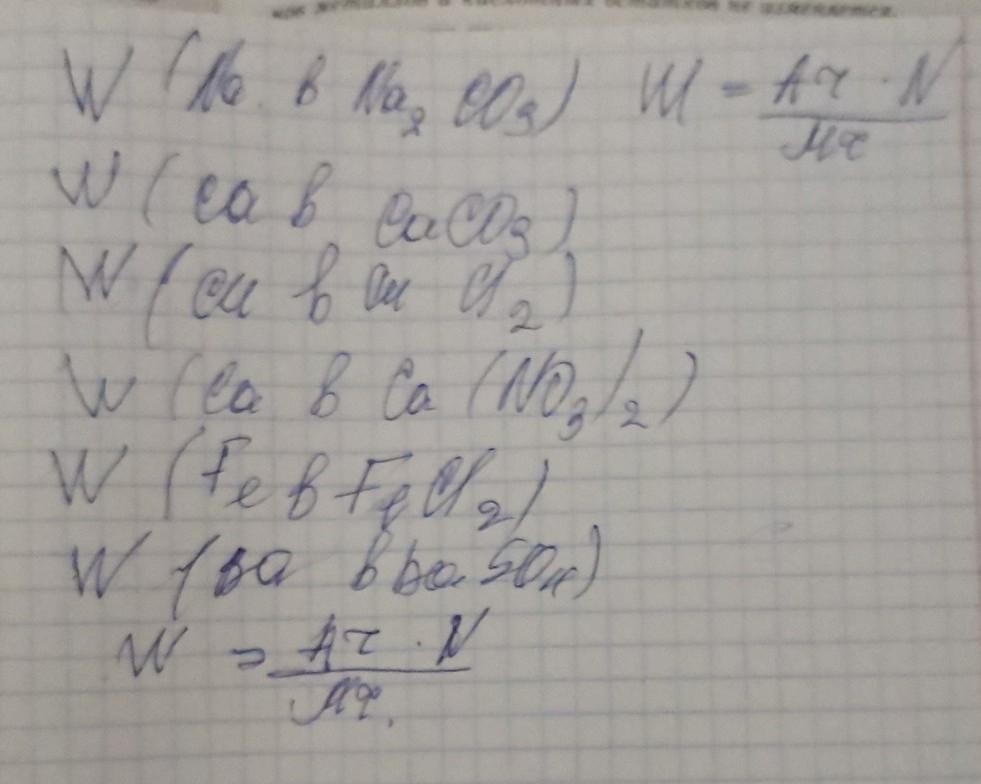 W (Na в Na₂ CO₃) W = Ar · N / Mr
W (Ca в CaCO₃)
W (Cu в Cu Cl₂)
W (Ca в Ca (NO₃)₂)
W (Fe в FeCl₂)
W (Ba в Ba SO₄)
W = Ar · N / Mr.